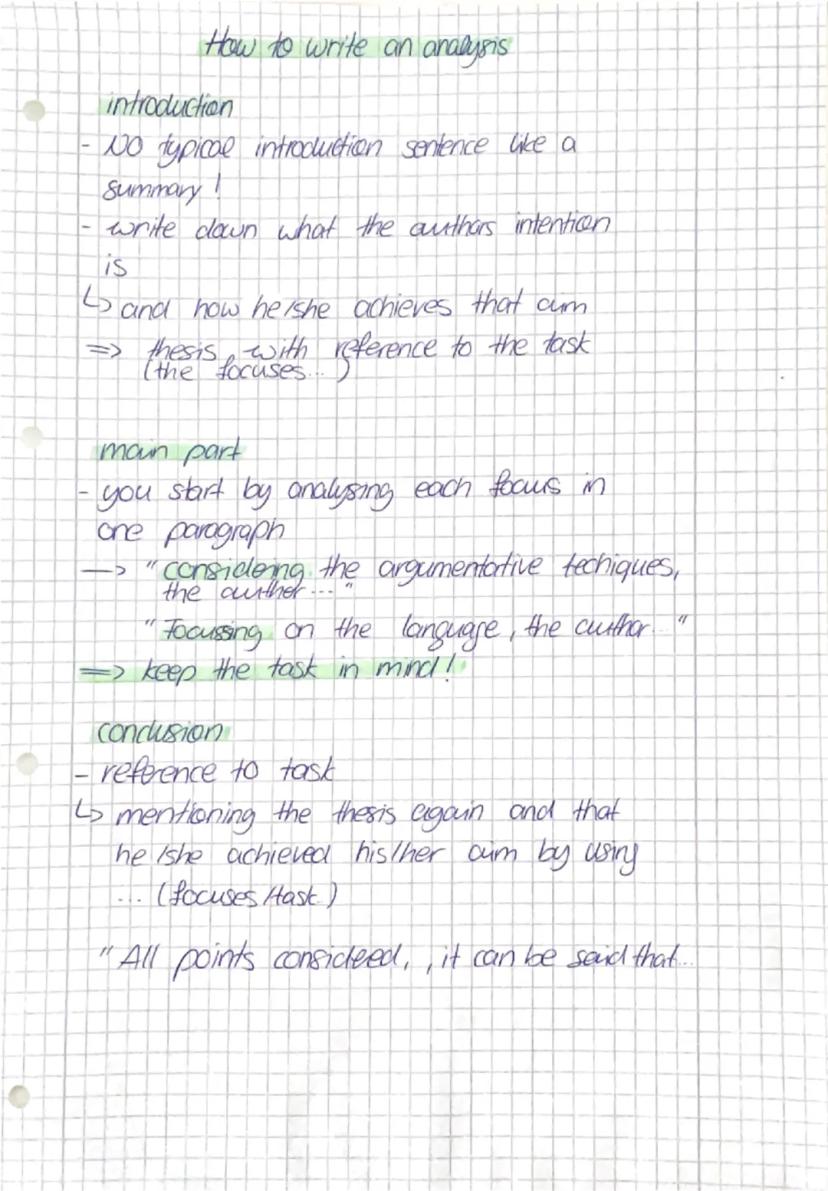 How to write an analysis
introduction
- NO typical introduction sentence like a
summary!
- write down what the authors intention
is
↳ and how he/she achieves that aim
=> thesis with reference to the task
(the focuses...)
main part
- you start by analysing each focus in
one paragraph
—> "considering the argumentative techiques,
the author..."
"Focussing on the language, the author..."
=> keep the task in mind!
conclusion
- reference to task
↳ mentioning the thesis again and that
he/she achieved his/her aim by using
... (focuses/task)
"All points consideed, , it can be said that...